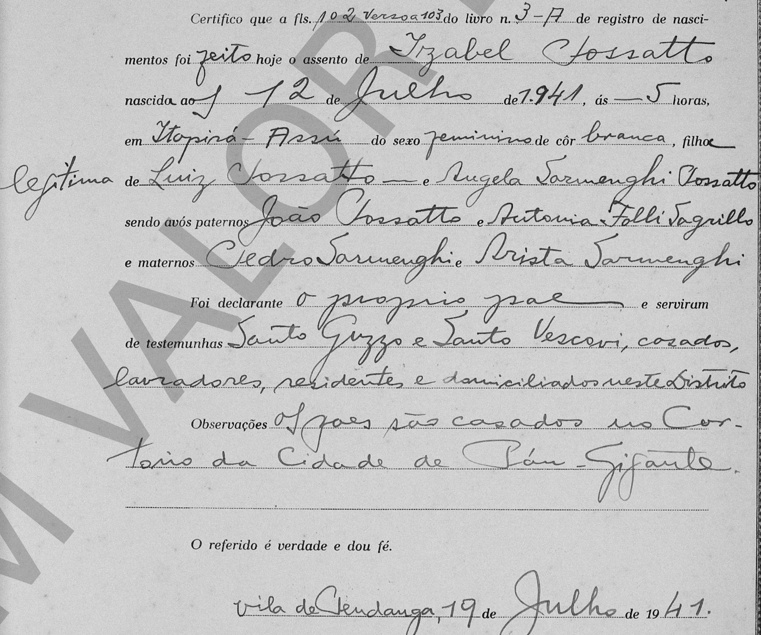 Certifico que a fls. 102 verso a 103 do livro n. 3-A de registro de nasci-
mentos foi feito hoje o assento de Izabel Tossatto
nascida aos 12 de Julho de 1.941, ás — 5 horas,
em Itapirá-Assú do sexo feminino de côr branca, filha
legitima de Luiz Tossatto — e Angela Sarmenghi Tossatto
sendo avós paternos João Tossatto e Antonia Folli Sagrillo
e maternos Pedro Sarmenghi e Arista Sarmenghi
Foi declarante o proprio pae e serviram
de testemunhas Santo Guzzo e Santo Vescovi, casados,
lavradores, residentes e domiciliados neste Distrito
Observações os paes são casados no Car-
torio da Cidade de Páu-Gigante.
O referido é verdade e dou fé.
Vila de Acioli, 19 de Julho de 1941.
M VALOR